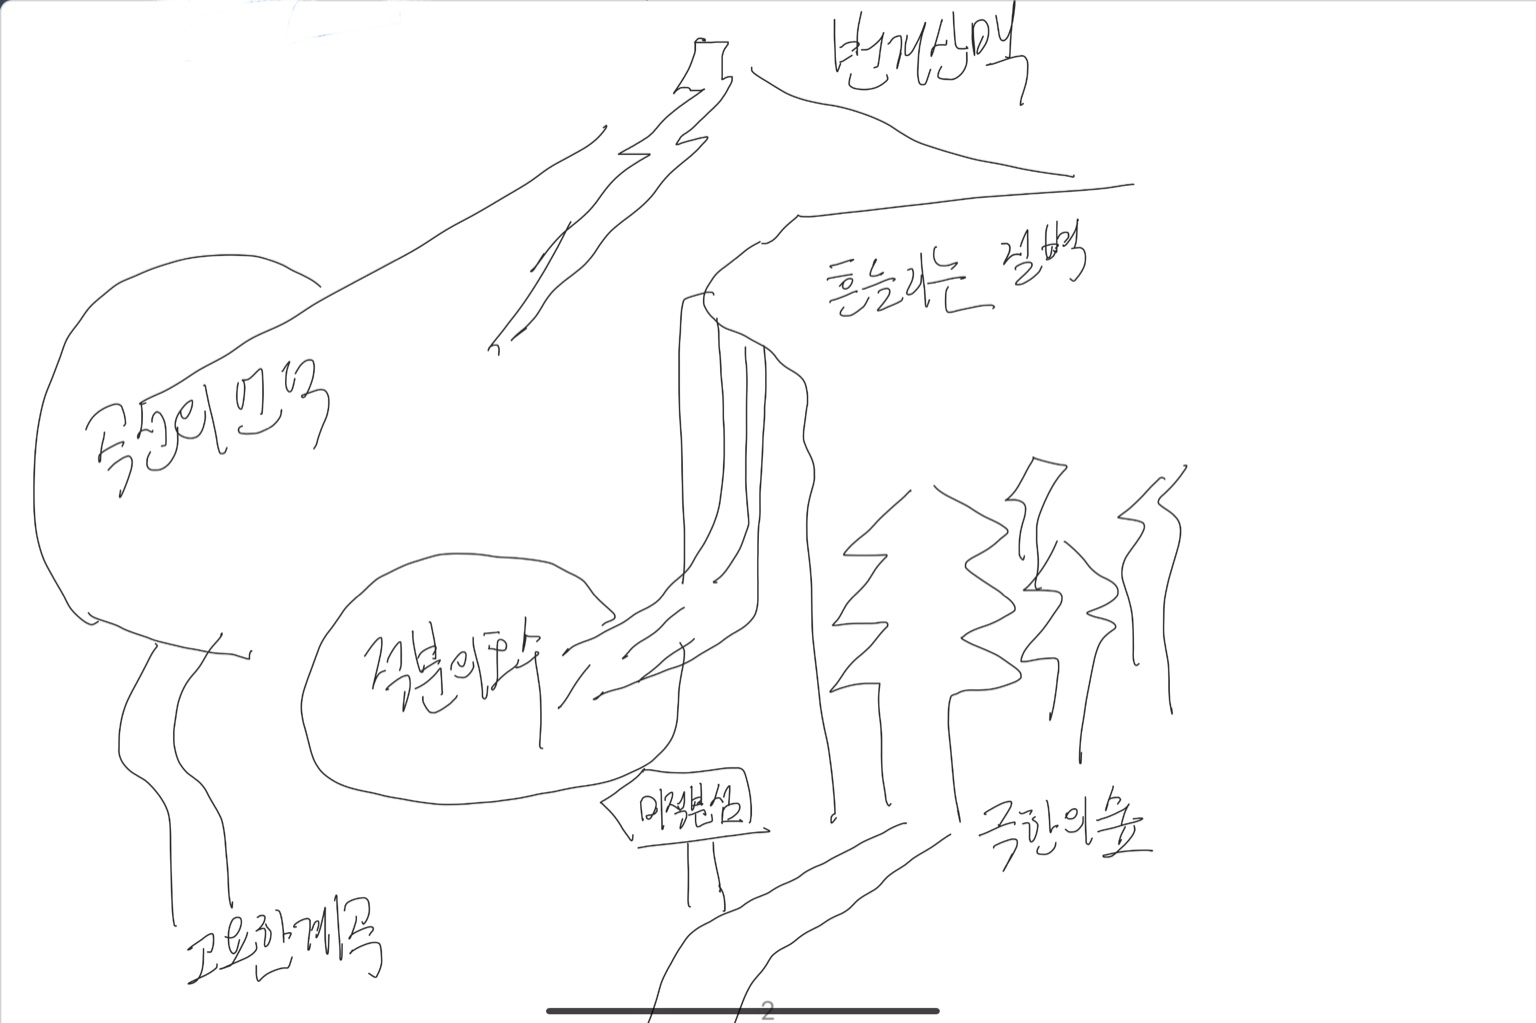 번개산맥
흔들리는 절벽
곡선의 언덕
적분의폭
미적분섬
극한의숲
고요한계곡
2